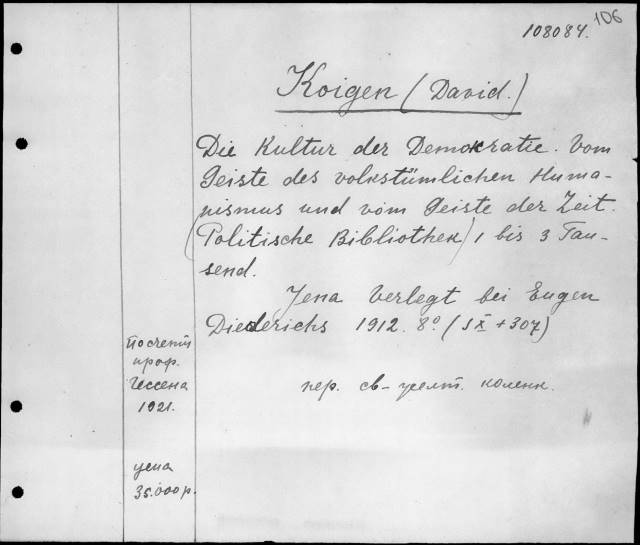 106
108084.
Koigen (David.)
Die Kultur der Demokratie. Vom
Geiste des volkstümlichen Huma-
nismus und vom Geiste der Zeit.
(Politische Bibliothek) 1 bis 3 Tau-
send.
Jena Verlegt bei Eugen
Diederichs 1912. 8º (IX + 307)
пер. св- желт. коленк.
По счету
проф.
Гессена
1921.
цена
35.000 р.